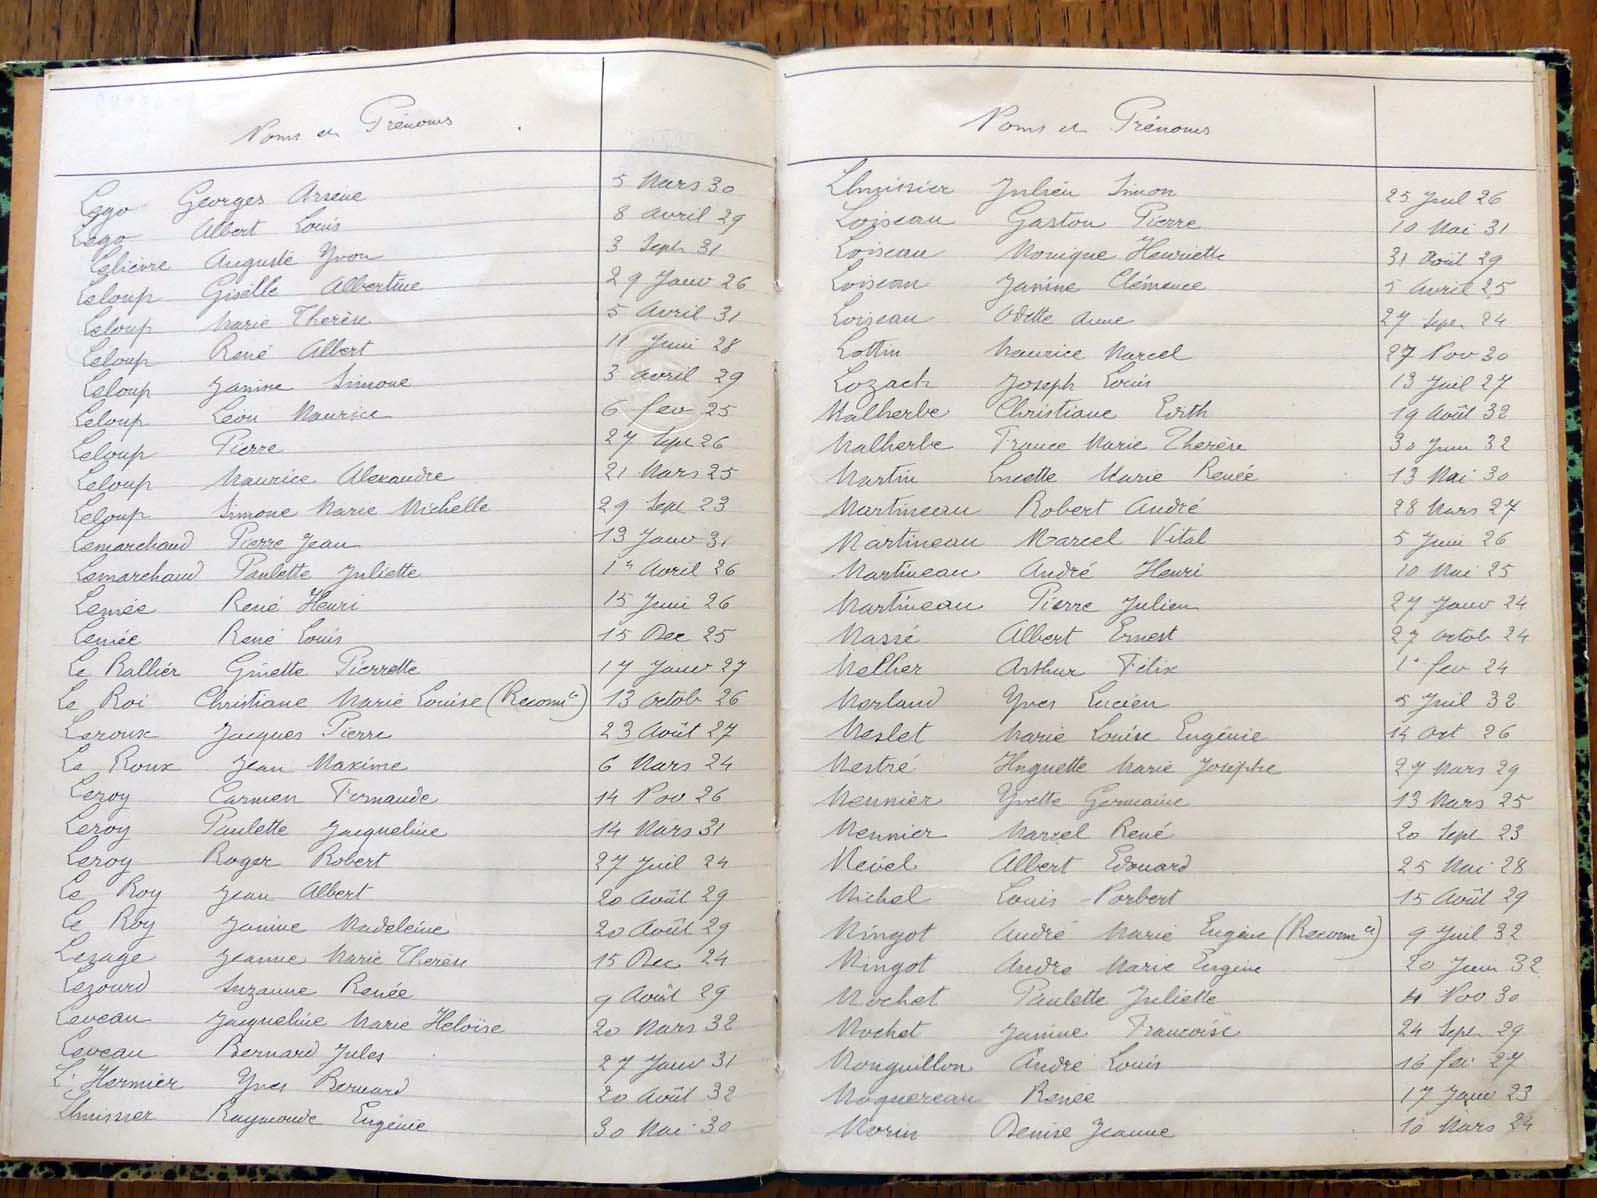 Noms et Prénoms
Lego Georges Arsène 5 Mars 30
Lego Albert Louis 8 avril 29
Lelièvre Auguste Yvon 3 Sept 31
Leloup Gisèlle Albertine 29 Janv 26
Leloup Marie Thérèse 5 avril 31
Leloup René Albert 11 Juin 28
Leloup Janine Simone 3 avril 29
Leloup Léon Maurice 6 fev 25
Leloup Pierre 27 Sept 26
Leloup Maurice Alexandre 21 Mars 25
Leloup Simone Marie Michelle 29 Sept 23
Lemarchand Pierre Jean 13 Janv 31
Lemarchand Paulette Juliette 1er Avril 26
Lemée René Henri 15 Juin 26
Lemée René Louis 15 Dec 25
Le Rallier Ginette Pierrette 17 Janv 27
Le Roi Christiane Marie Louise (Reconn ce) 13 octob 26
Leroux Jacques Pierre 23 Août 27
Le Roux Jean Maxime 6 Mars 24
Leroy Carmen Fernande 14 Nov 26
Leroy Paulette Jacqueline 14 Mars 31
Leroy Roger Robert 27 Juil 24
Le Roy Jean Albert 20 Août 29
Le Roy Janine Madeleine 20 Août 29
Lesage Jeanne Marie Thérèse 15 Dec 24
Lesourd Suzanne Renée 9 Août 29
Leveau Jacqueline Marie Heloïse 20 Mars 32
Leveau Bernard Jules 27 Janv 31
L'Hermier Yves Bernard 20 Août 32
Lhuissier Raymonde Eugénie 30 Mai 30
Noms et Prénoms
Lhuissier Julien Simon 25 Juil 26
Loiseau Gaston Pierre 10 Mai 31
Loiseau Monique Henriette 31 Août 29
Loiseau Janine Clémence 5 avril 25
Loiseau Odette Anne 27 Sept 24
Lottin Maurice Marcel 27 Nov 30
Lozach Joseph Louis 13 Juil 27
Malherbe Christiane Edith 19 Août 32
Malherbe France Marie Thérèse 30 Juin 32
Martin Lucette Marie Renée 13 Mai 30
Martineau Robert André 28 Mars 27
Martineau Marcel Vital 5 Juin 26
Martineau André Henri 10 Mai 25
Martineau Pierre Julien 27 Janv 24
Massé Albert Ernest 27 octob 24
Mellier Arthur Félix 1er fev 24
Merland Yves Lucien 5 Juil 32
Meslet Marie Louise Eugénie 14 oct 26
Mestré Huguette Marie Josèphe 27 Mars 29
Meunier Yvette Germaine 13 Mars 25
Meunier Marcel René 20 Sept 23
Mével Albert Edouard 25 Mai 28
Michel Louis Norbert 15 Août 29
Mingot André Marie Eugène (Reconn ce) 9 Juil 32
Mingot André Marie Eugène 20 Juin 32
Mochet Paulette Juliette 4 Nov 30
Mochet Janine Françoise 24 Sept 29
Monguillon André Louis 16 fév 27
Moquereau Renée 17 Janv 23
Morin Denise Jeanne 10 Mars 24